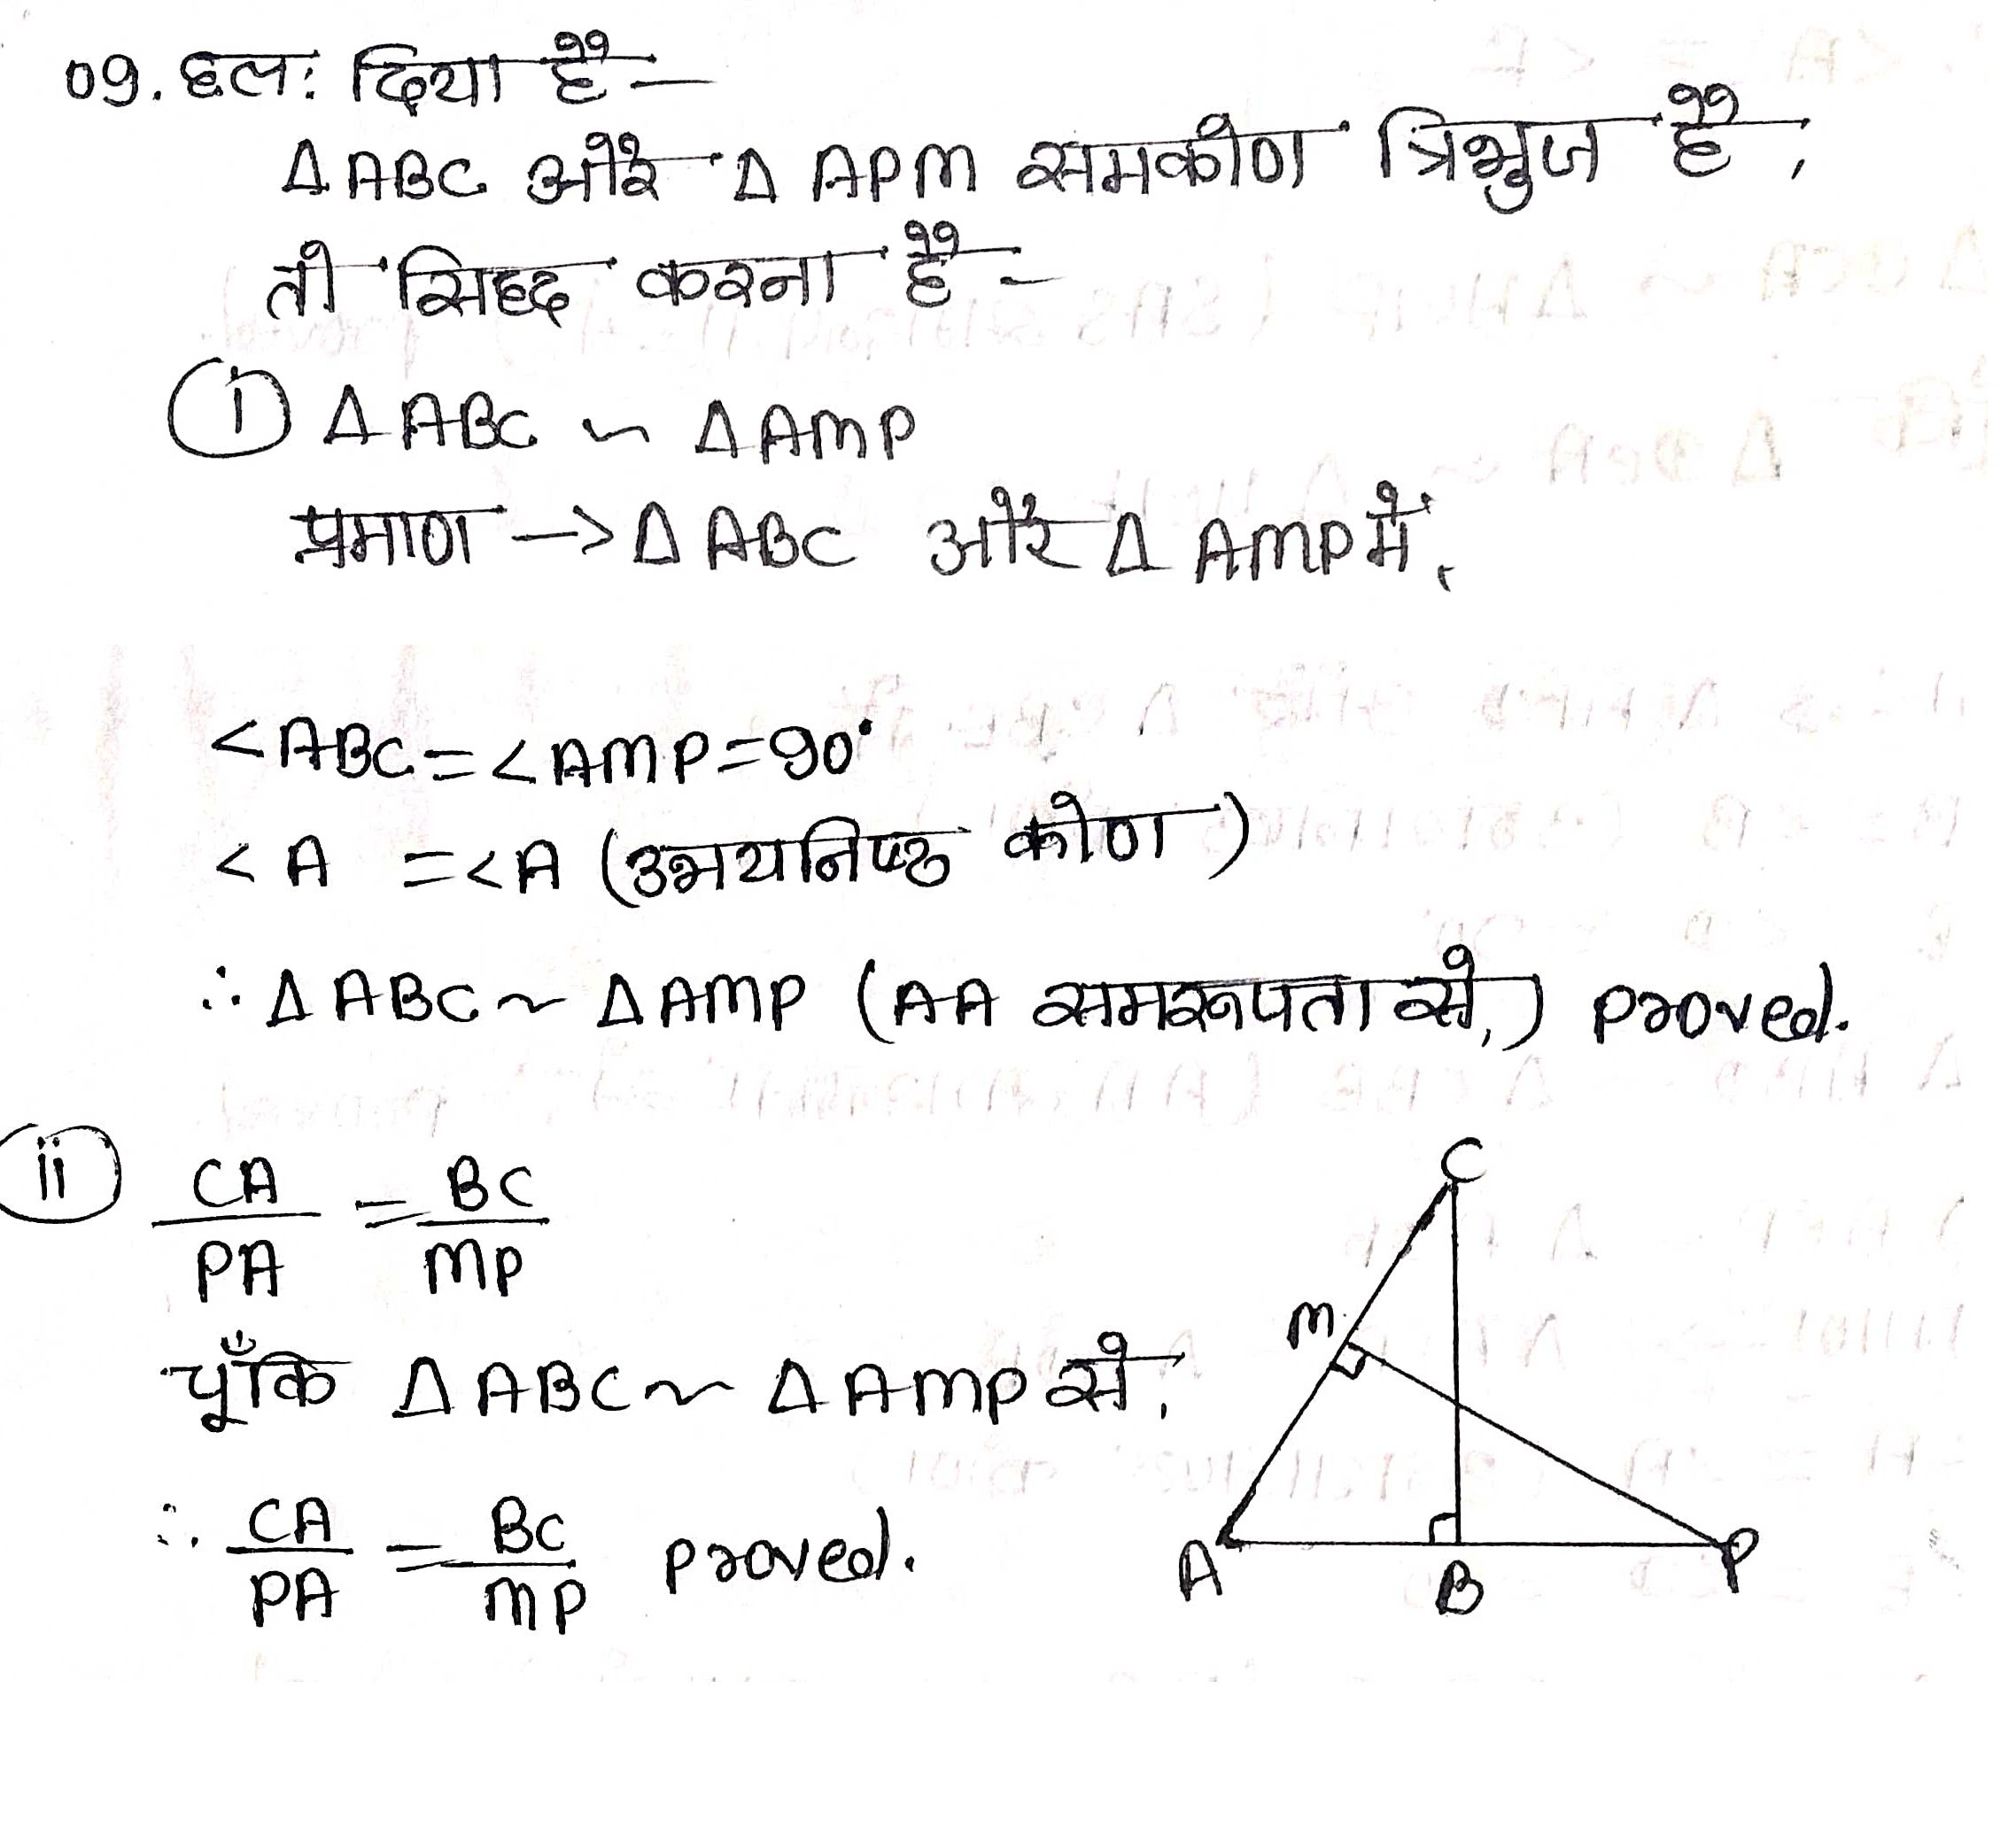 09. हल: दिया है —
Δ ABC और Δ APM समकोण त्रिभुज है,
तो सिद्ध करना है -
(i) Δ ABC ~ Δ AMP
प्रमाण -> Δ ABC और Δ AMP में,
<ABC = <AMP = 90°
<A = <A (उभयनिष्ठ कोण)
∴ Δ ABC ~ Δ AMP (AA समरूपता से,) proved.
(ii) CA/PA = BC/MP
चूँकि Δ ABC ~ Δ AMP से,
∴ CA/PA = BC/MP proved.
C
M
A
B
P